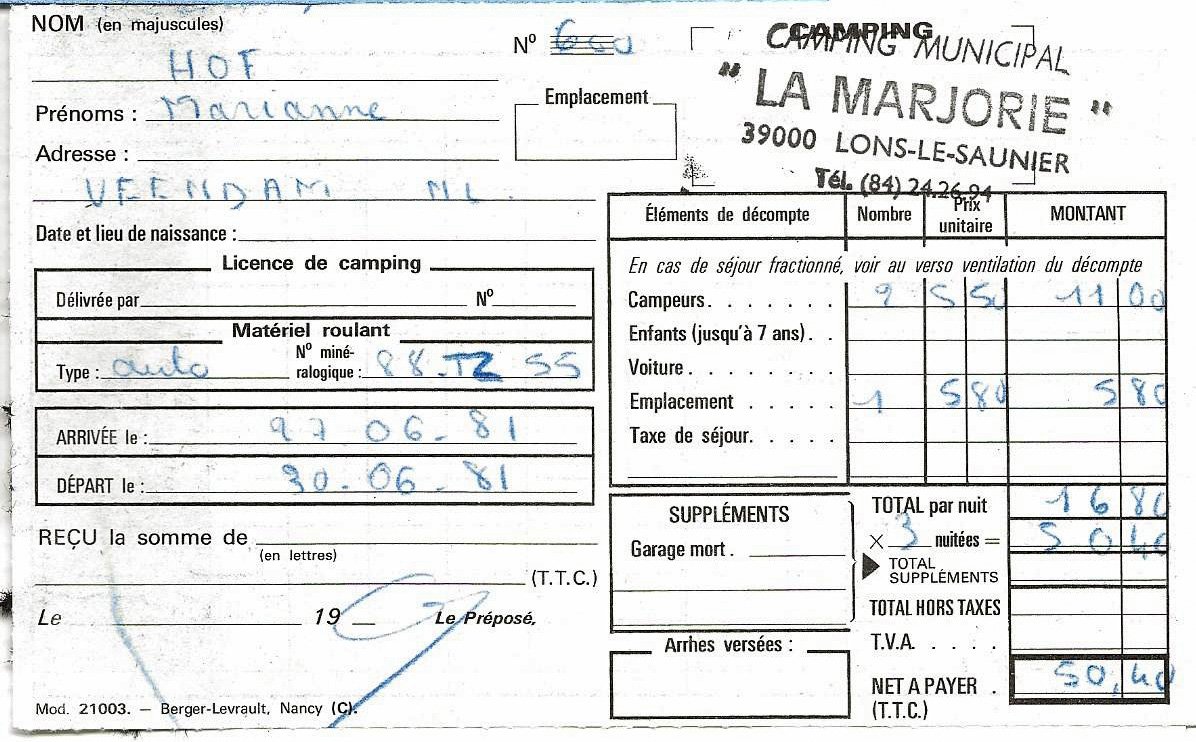 NOM (en majuscules)
HOF
Nº 600
CAMPING
CAMPING MUNICIPAL
"LA MARJORIE"
39000 LONS-LE-SAUNIER
Tél. (84) 24.26.94
Prénoms : Marianne
Emplacement
Adresse :
VEENDAM NL.
Date et lieu de naissance :
Licence de camping
Délivrée par Nº
Matériel roulant
Type : auto Nº miné-
ralogique : 88-TZ 55
ARRIVÉE le : 27.06.81
DÉPART le : 30.06.81
REÇU la somme de
(en lettres)
(T.T.C.)
Le 19 Le Préposé,
Mod. 21003. — Berger-Levrault, Nancy (C).
Éléments de décompte Nombre Prix unitaire MONTANT
En cas de séjour fractionné, voir au verso ventilation du décompte
Campeurs. . . . . . . 2 5 50 11 00
Enfants (jusqu'à 7 ans). .
Voiture. . . . . . . .
Emplacement . . . . . 1 5 80 5 80
Taxe de séjour. . . . .
SUPPLÉMENTS
Garage mort .
TOTAL par nuit 16 80
× 3 nuitées = 50 40
TOTAL
SUPPLÉMENTS
TOTAL HORS TAXES
Arrhes versées :
T.V.A. . . . .
NET A PAYER . 50,40
(T.T.C.)